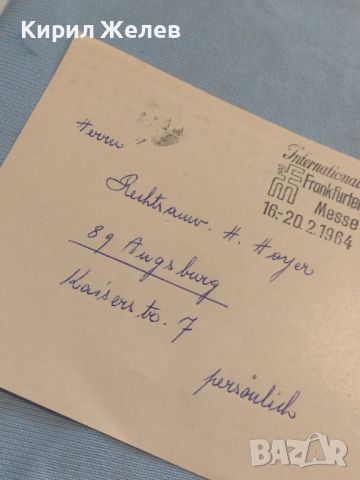 Кирил Желев
International
Frankfurter
Messe
16-20.2.1964
Herrn
Rechtsanw. H. Hoyer
89 Augsburg
Kaiserstr. 7
persönlich
BAZAR
bg